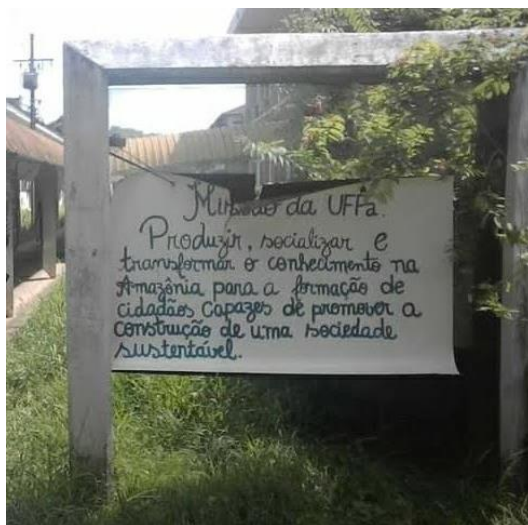 Missão da UFPa.
Produzir, socializar e
transformar o conhecimento na
Amazônia para a formação de
cidadãos capazes de promover a
construção de uma sociedade
sustentável.